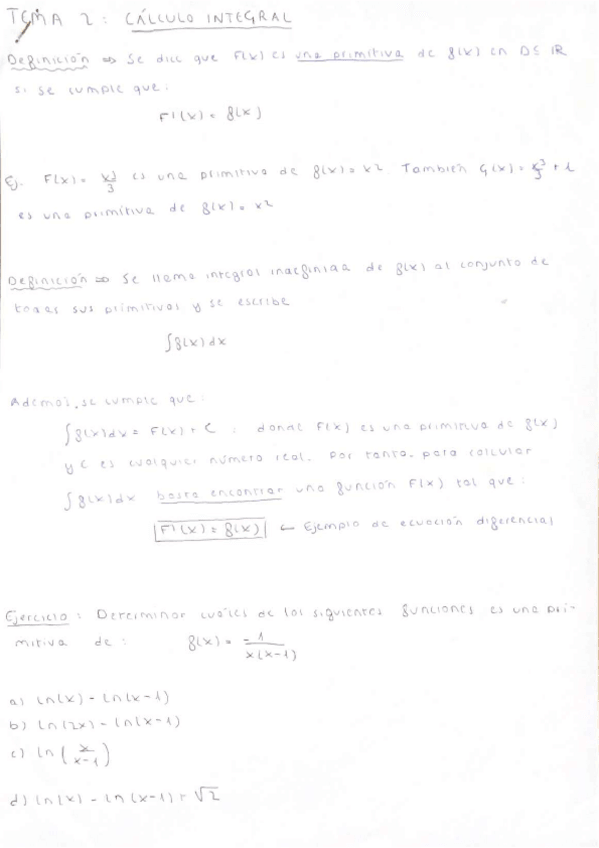 TEMA 2: CÁLCULO INTEGRAL
Definición ⇒ Se dice que F(x) es una primitiva de f(x) en D⊆ℝ
si se cumple que:
F'(x) = f(x)
Ej. F(x) = x³/3 es una primitiva de f(x) = x² También G(x) = x³/3 + 1
es una primitiva de f(x) = x²
Definición ⇒ Se llama integral indefinida de f(x) al conjunto de
todas sus primitivas y se escribe
∫f(x)dx
Además, se cumple que:
∫f(x)dx = F(x) + C : donde F(x) es una primitiva de f(x)
y C es cualquier número real. Por tanto, para calcular
∫f(x)dx basta encontrar una función F(x) tal que:
F'(x) = f(x) ← Ejemplo de ecuación diferencial
Ejercicio: Determinar cuáles de las siguientes funciones es una pri-
mitiva de: f(x) = -1/x(x-1)
a) ln(x) - ln(x-1)
b) ln(2x) - ln(x-1)
c) ln(x/x-1)
d) ln(x) - ln(x-1) + √2